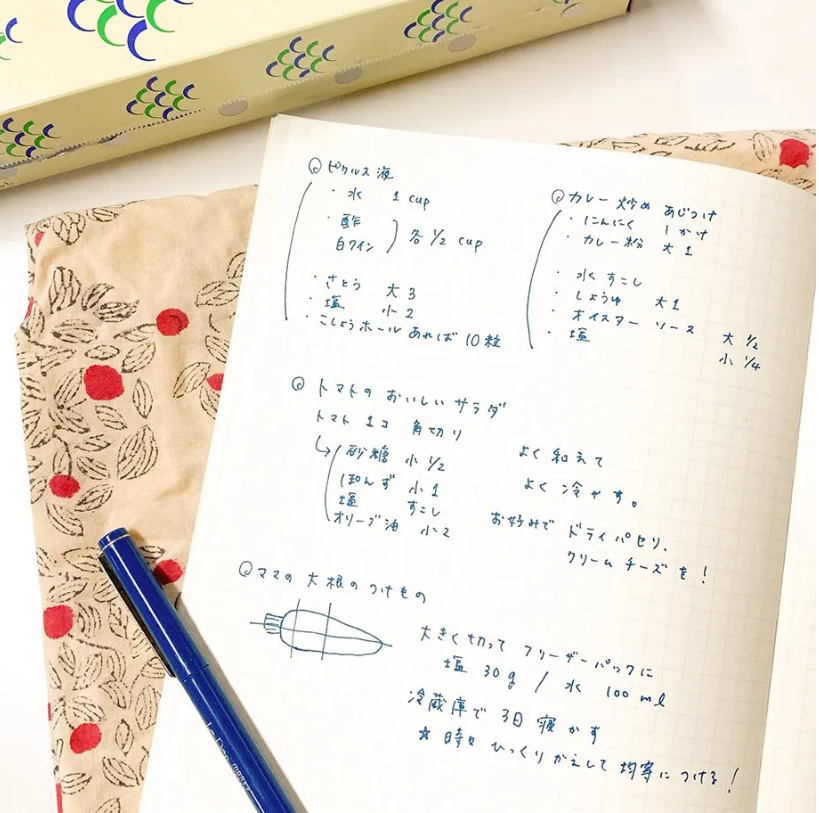 ピクルス液
・水 1 cup
・酢
白ワイン 各 1/2 cup
・さとう 大 3
・塩 小 2
・こしょうホール あれば 10粒
カレー炒め あじつけ
・にんにく 1かけ
・カレー粉 大 1
・水 すこし
・しょうゆ 大 1
・オイスターソース 大 1/2
・塩 小 1/4
トマトの おいしい サラダ
トマト 1コ 角切り
砂糖 小 1/2
ぽんず 小 1
塩 すこし
オリーブ油 小 2
よく 和えて
よく 冷やす。
お好みで ドライパセリ、
クリームチーズも!
ママの 大根の つけもの
大きく切って フリーザーパックに
塩 30g / 水 100 ml
冷蔵庫で 3日 寝かす
☆ 時々 ひっくりかえして 均等に つける!
Le Pen